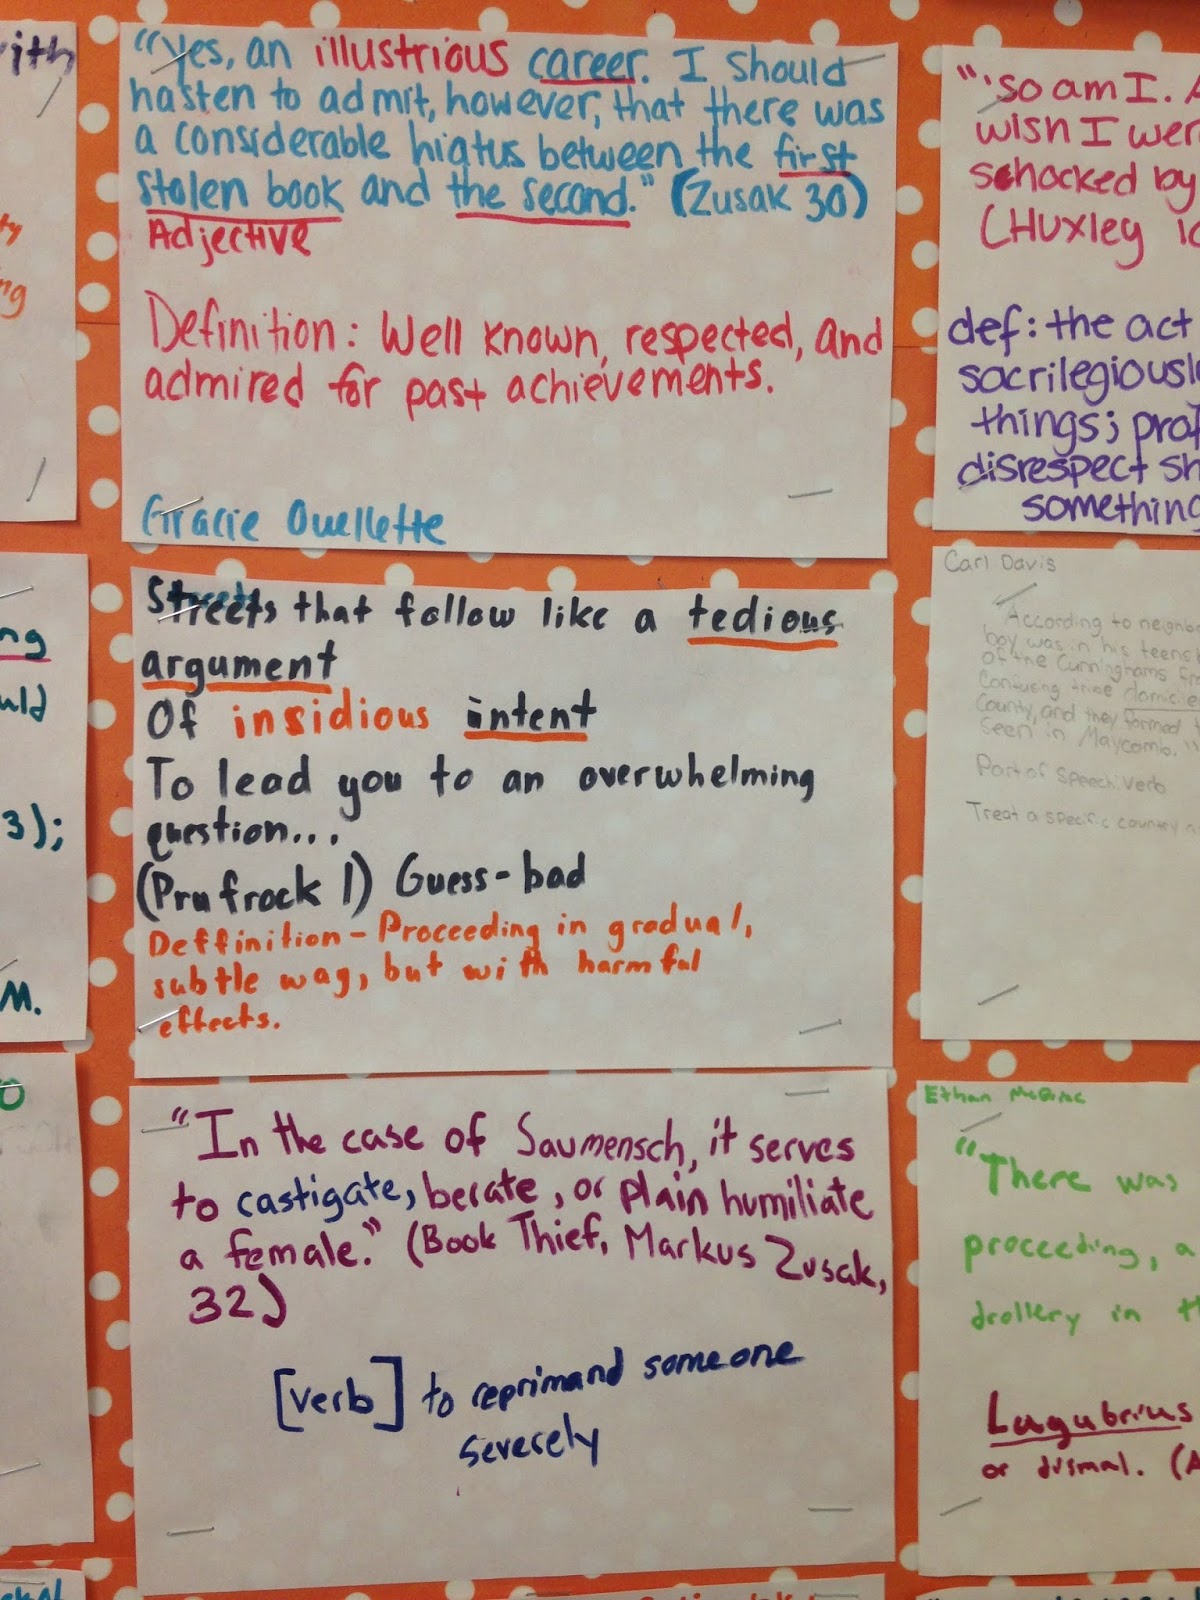 with
"Yes, an illustrious career. I should
hasten to admit, however, that there was
a considerable hiatus between the first
stolen book and the second." (Zusak 30)
Adjective
Definition: Well known, respected, and
admired for past achievements.
Gracie Ouellette
Streets that follow like a tedious
argument
Of insidious intent
To lead you to an overwhelming
question...
(Prufrock 1) Guess-bad
Deffinition - Proceeding in gradual,
subtle way, but with harmful
effects.
"In the case of Saumensch, it serves
to castigate, berate, or plain humiliate
a female." (Book Thief, Markus Zusak,
32)
[verb] to reprimand someone
severely
"'so am I. A
wish I wer
schocked by
(Huxley
def: the act
sacrilegiously
things; prof
disrespect sh
something
Carl Davis
According to neighbor
boy was in his teens
of the Cunninghams fr
confusing tribe domicile
County, and they formed
seen in Maycomb."
Part of speech: verb
Treat a specific country a
Ethan
"There was
proceeding, a
drollery in th
Lugubrius
or dismal. (A
ty
ng
ng
uld
3);
M.